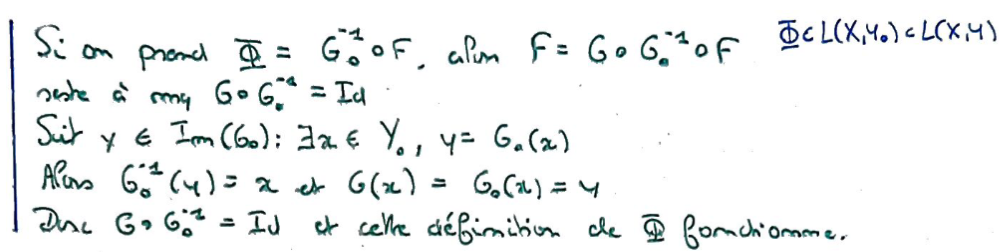 Si on prend Φ = G₀⁻¹∘F, alors F = G∘G₀⁻¹∘F Φ∈L(X,Y₀)⊂L(X,Y)
reste à mq G∘G₀⁻¹ = Id
Soit y ∈ Im(G₀): ∃x ∈ Y₀, y = G₀(x)
Alors G₀⁻¹(y) = x et G(x) = G₀(x) = y
Donc G∘G₀⁻¹ = Id et cette définition de Φ fonctionne.